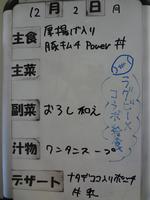 12月2日 月
主食 厚揚げ入り
豚キムチ Power 丼
主菜
副菜 おろし和え
汁物 ワンタンスープ
デザート ナタデココ入りポンチ
牛乳